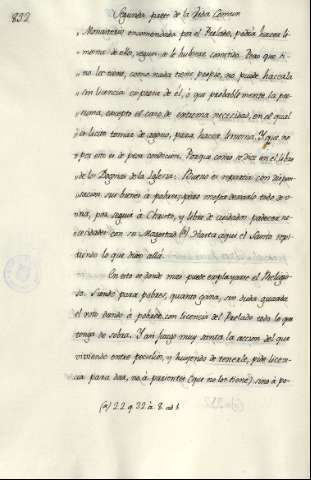 832
Segunda parte de la Vida Comun
" Monasterio encomendada por el Prelado, podrá hacer li-
" mosna de ello, segun se le hubiere cometido. Pero que si
" no las tiene, como nada tiene propio, no puede hacerla
" sin licencia expresa de él, ó que probablemente la pre-
" suma, excepto el caso de extrema necesidad, en el qual
" es licito tomar de ageno, para hacer limosna. Y que no
" por esto es de peor condicion. Porque como se dice en el libro
" de los Dogmas de la Iglesia: Bueno es repartir con dispen-
" sacion sus bienes á pobres; pero mejor dexarlo todo de u-
" na, por seguir á Christo, y libre de cuidados padecer ne-
" cesidades con su Magestad (a). Hasta aqui el Santo repi-
tiendo lo que dixo allá.
En esto es donde mas puede explayarse el Religio-
so. Siendo para pobres, quanto gana, sin duda guarda
el voto dando á pobres con licencia del Prelado todo lo que
tenga de sobra. Y aun juzgo muy santa la accion del que
viviendo entre peculios, y huyendo de tenerle, pide licen-
cia para dar, no á parientes (que no los tiene) sino á po-
(a) 2.2. q. 32. a. 8. ad 1.